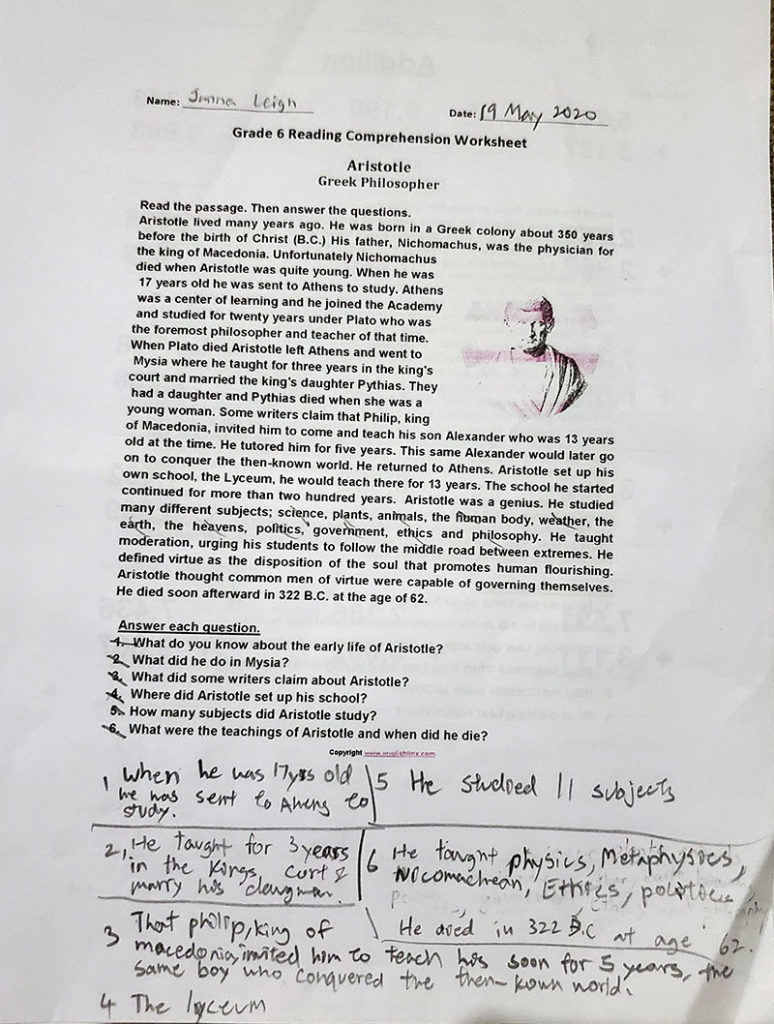 Name: Janna Leigh
Date: 19 May 2020
Grade 6 Reading Comprehension Worksheet
Aristotle
Greek Philosopher
Read the passage. Then answer the questions.
Aristotle lived many years ago. He was born in a Greek colony about 350 years
before the birth of Christ (B.C.) His father, Nichomachus, was the physician for
the king of Macedonia. Unfortunately Nichomachus
died when Aristotle was quite young. When he was
17 years old he was sent to Athens to study. Athens
was a center of learning and he joined the Academy
and studied for twenty years under Plato who was
the foremost philosopher and teacher of that time.
When Plato died Aristotle left Athens and went to
Mysia where he taught for three years in the king's
court and married the king's daughter Pythias. They
had a daughter and Pythias died when she was a
young woman. Some writers claim that Philip, king
of Macedonia, invited him to come and teach his son Alexander who was 13 years
old at the time. He tutored him for five years. This same Alexander would later go
on to conquer the then-known world. He returned to Athens. Aristotle set up his
own school, the Lyceum, he would teach there for 13 years. The school he started
continued for more than two hundred years. Aristotle was a genius. He studied
many different subjects; science, plants, animals, the human body, weather, the
earth, the heavens, politics, government, ethics and philosophy. He taught
moderation, urging his students to follow the middle road between extremes. He
defined virtue as the disposition of the soul that promotes human flourishing.
Aristotle thought common men of virtue were capable of governing themselves.
He died soon afterward in 322 B.C. at the age of 62.
Answer each question.
1. What do you know about the early life of Aristotle?
2. What did he do in Mysia?
3. What did some writers claim about Aristotle?
4. Where did Aristotle set up his school?
5. How many subjects did Aristotle study?
6. What were the teachings of Aristotle and when did he die?
Copyright www.englishlinx.com
1 When he was 17yrs old
he was sent to Athens to
study.
2, He taught for 3 years
in the Kings, curt &
marry his
3 That philip, king of
macedonia, invited him to teach his soon for 5 years, the
same boy who conquered the then-kown world.
4 The lyceum
5 He studied 11 subjects
6 He taught physics, Metaphysics,
Nicomachean, Ethics,
He died in 322 B.C at age 62.